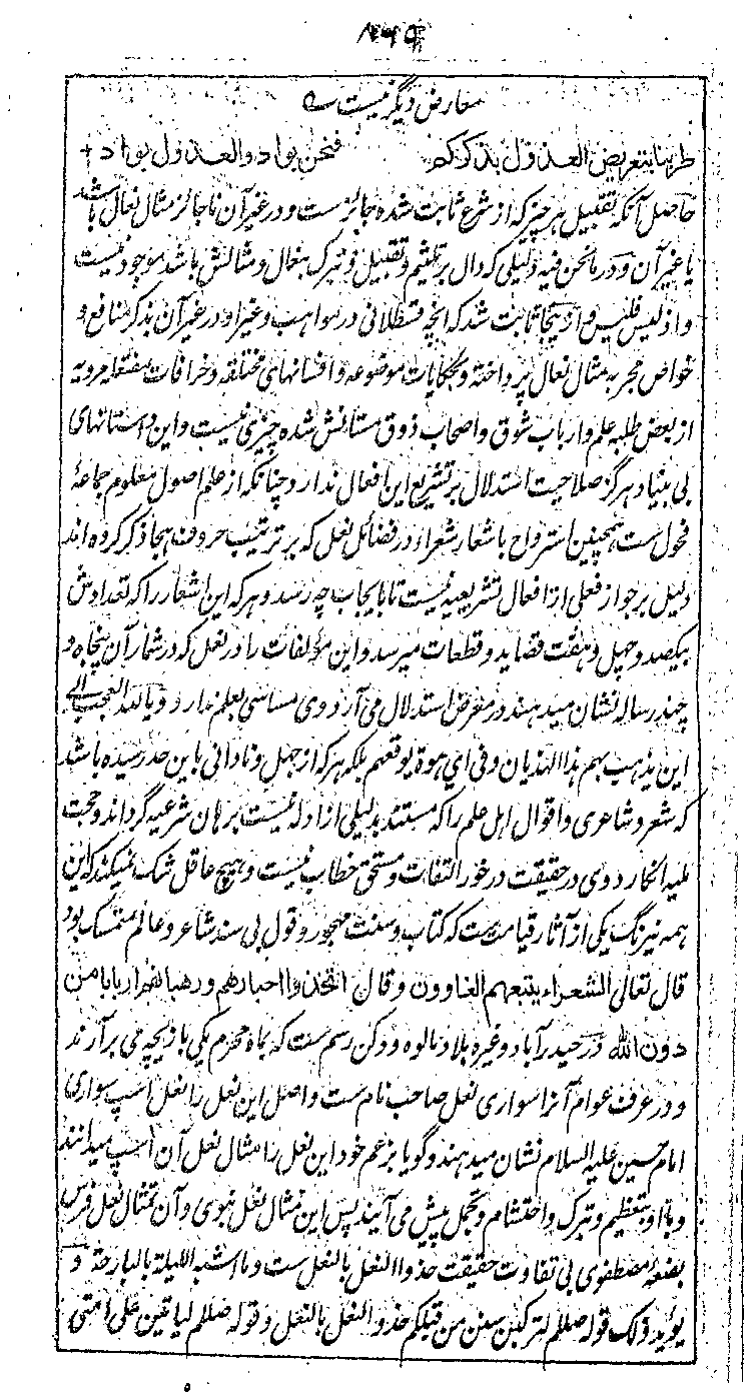 معارض دیگر نیست
طربنا بتعریض العذول بذکرکم فنحن بواد والعذول بواد
حاصل آنکه تقبیل هر چیز که از شرع ثابت شده جائزست و در غیر آن ناجائز مثال نعال باشد
یا غیر آن و در ما نحن فیه دلیلی که دال بر تلثیم و تقبیل و تبرک بنعال و مثالش باشد موجود نیست
و اذ لیس فلیس و ازینجا ثابت شد که انچه قسطلانی در مواهب و غیر او در غیر آن بذکر منافع و
خواص مجربه مثال نعال پرداخته و بحکایات موضوعه و افسانهای مختلقه و خرافات مفتعله مرویه
از بعض طلبه علم و ارباب شوق و اصحاب ذوق مستانش شده چیزی نیست و این داستانهای
بی بنیاد هرگز صلاحیت استدلال بر تشریع این افعال ندارد چنانکه از علم اصول معلوم جماعهٔ
فحول ست همچنین استرواح باشعار شعراء در فضائل نعل که بر ترتیب حروف هجا ذکر کرده اند
دلیل بر جواز فعلی از افعال تشریعیه نیست تا بایجاب چه رسد و هر که این اشعار را که تعدادش
بیکصد و چهل و هفت قصاید و قطعات میرسد و این مؤلفات را در نعل که در شمار آن پنجاه و
چند رساله نشان میدهند در معرض استدلال می آرد وی مساسی بعلم ندارد و یالله العجب الی
این یذهب بهم هذا الهذیان و فی ای هوة یوقعهم بلکه هر که از جهل و نادانی باین حد رسیده باشد
که شعر و شاعری و اقوال اهل علم را که مستند بدلیلی از ادله نیست برهان شرعیه گرداند و حجت
ملیه انگارد وی در حقیقت در خور التفات و مستحق خطاب نیست و هیچ عاقل شک نمیکند که این
همه نیرنگ یکی از آثار قیامت ست که کتاب و سنت مهجور و قول بی سند شاعر و عالم متمسک بود
قال تعالی الشعراء یتبعهم الغاوون و قال اتخذوا احبارهم و رهبانهم اربابا من
دون الله در حیدرآباد و غیره بلاد مالوه و دکن رسم ست که بماه محرم یکی بازیچه می برآرند
و در عرف عوام آنرا سواری نعل صاحب نام ست و اصل این نعل را نعل اسپ سواری
امام حسین علیه السلام نشان میدهند و گویا بزعم خود این نعل را مثال نعل آن اسپ میدانند
و باو بتعظیم و تبرک و احتشام و تجمل پیش می آیند پس این مثال نعل نبوی و آن تمثال نعل فرس
بضعهٔ مصطفوی بی تفاوت حقیقت حذو النعل بالنعل ست و ما اشبه اللیلة بالبارحة و
یؤید ذلک قوله صللم لترکبن سنن من قبلکم حذو النعل بالنعل و قوله صللم لیاتین علی امتی